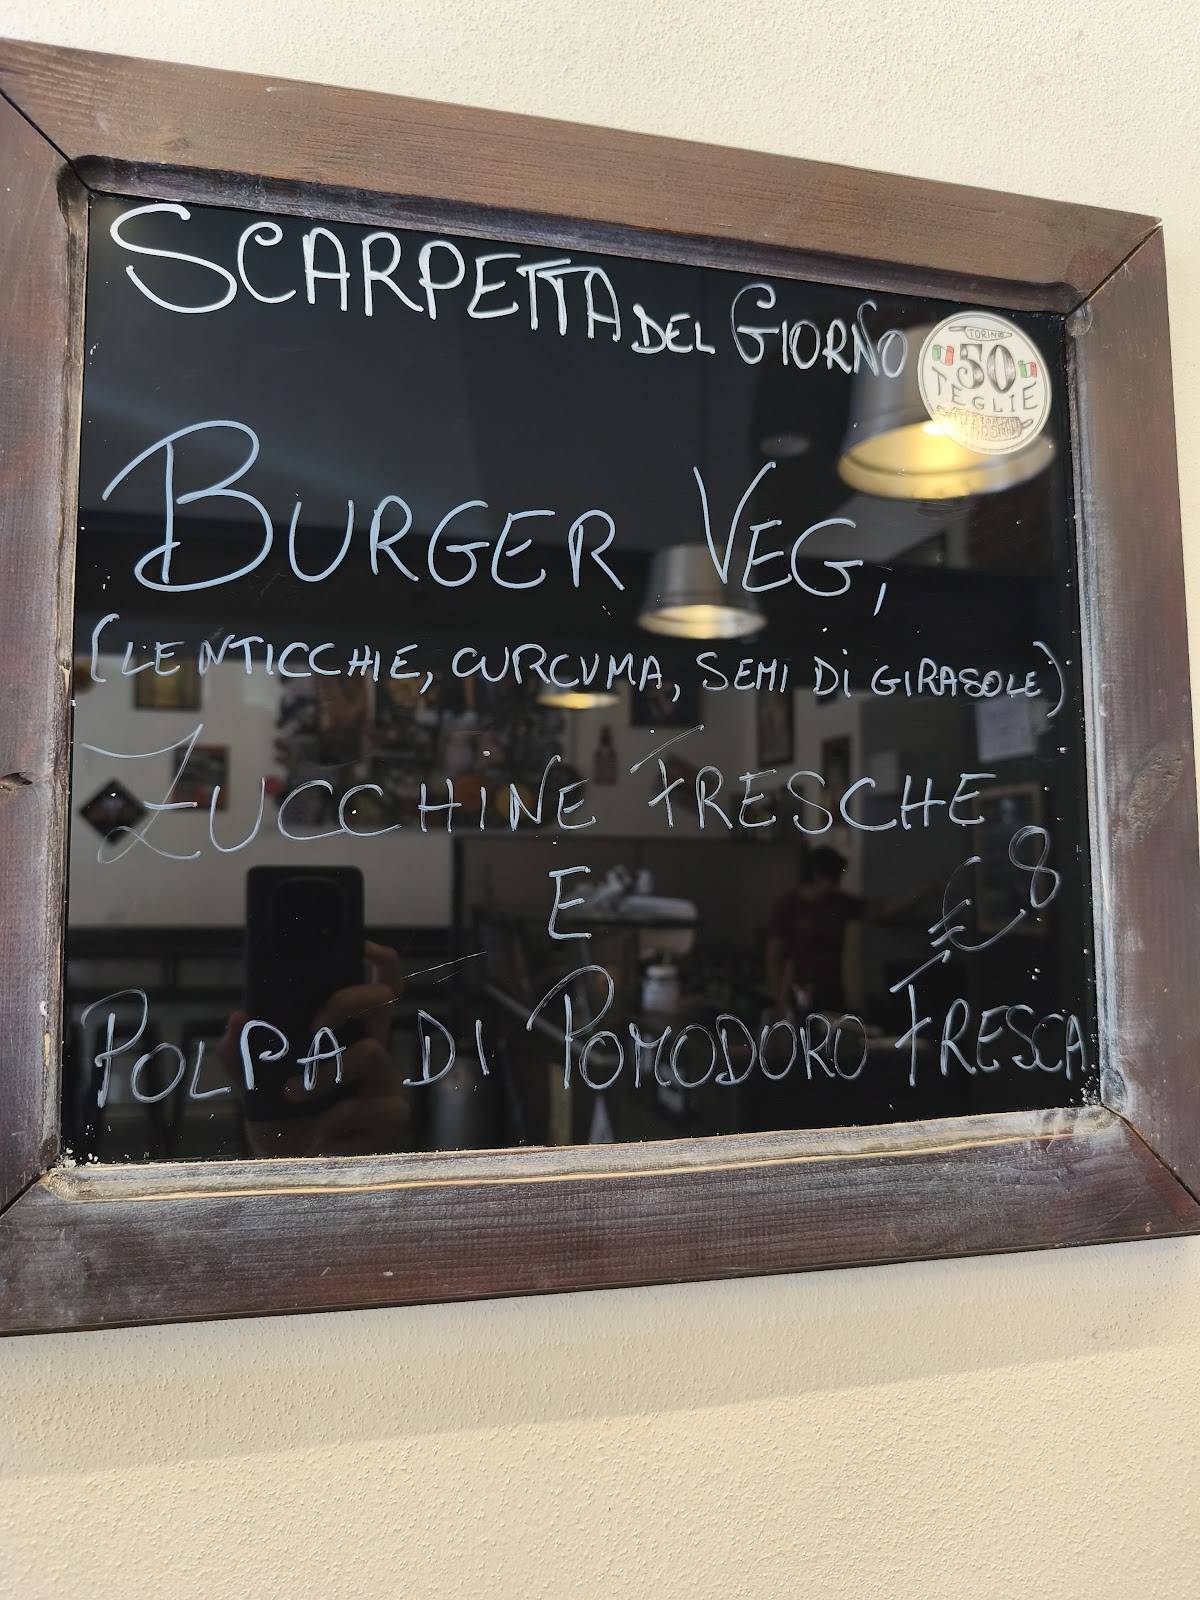 SCARPETTA DEL GIORNO
TORINO
50
TEGLIE
BURGER VEG,
(LENTICCHIE, CURCUMA, SEMI DI GIRASOLE)
ZUCCHINE FRESCHE
E
€8
POLPA DI POMODORO FRESCA